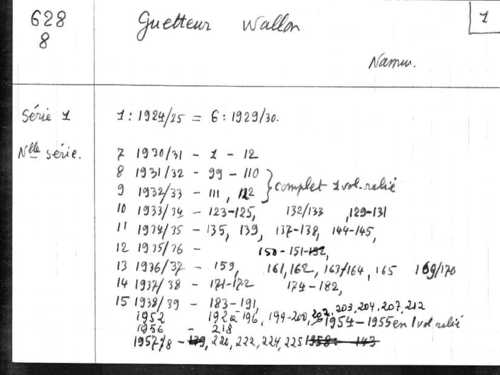 628
8
Guetteur Wallon
1
Namur.
Série 1 1 : 1924/25 = 6 : 1929/30.
Nlle série. 7 1930/31 - 1 - 12
8 1931/32 - 99 - 110
9 1932/33 - 111, 122 } complet 1 vol. relié
10 1933/34 - 123-125, 132/133, 129-131
11 1934/35 - 135, 139, 137-138, 144-145,
12 1935/36 - 150-151-152,
13 1936/37 - 159, 161, 162, 163/164, 165 169/170
14 1937/38 - 171-172 174-182,
15 1938/39 - 183-191, 203, 204, 207, 212
1952 192 à 196, 199-200, 1954-1955 en 1 vol relié
1956 - 218
1957/8 - 220, 222, 224, 225 1958 : 143